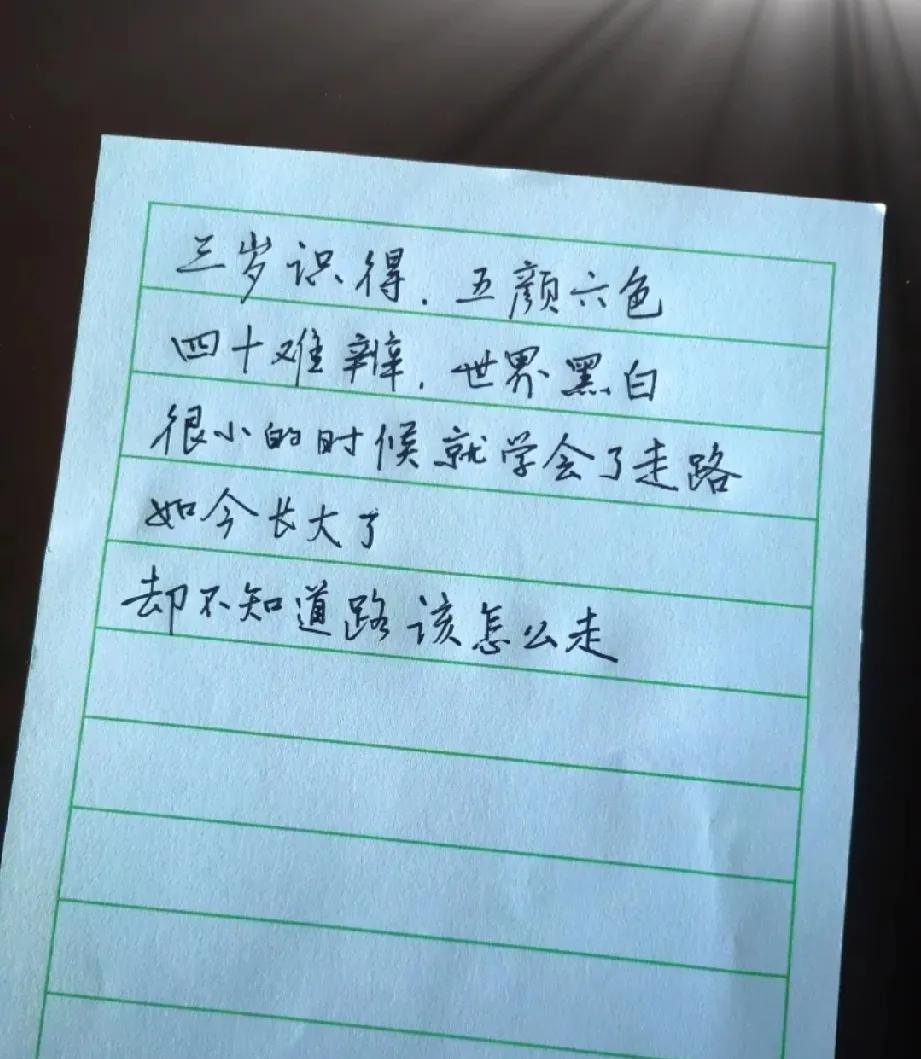 三岁识得.五颜六色
四十难辨.世界黑白
很小的时候就学会了走路
如今长大了
却不知道路该怎么走